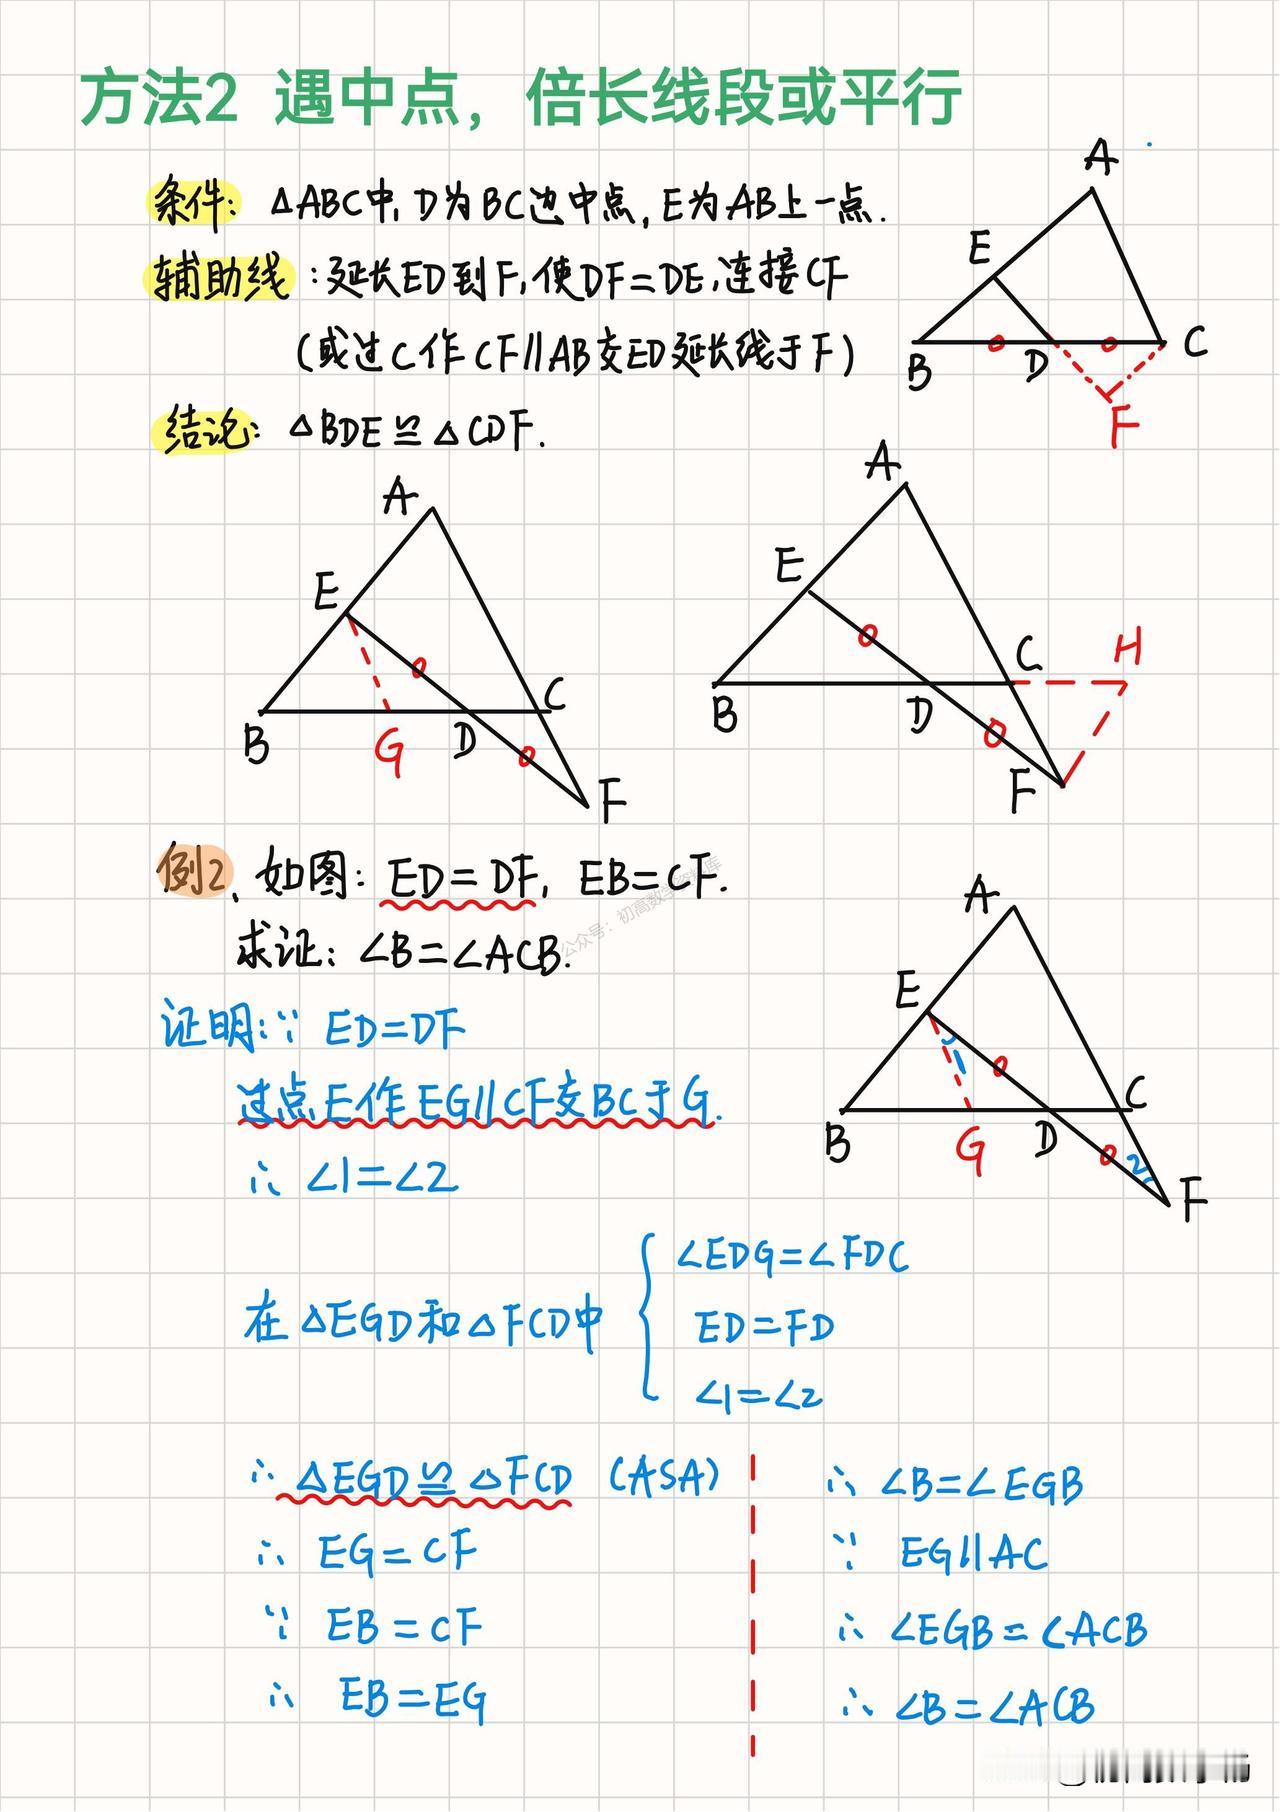 方法2 遇中点，倍长线段或平行
条件：△ABC中，D为BC边中点，E为AB上一点．
辅助线：延长ED到F，使DF=DE，连接CF
（或过C作CF∥AB交ED延长线于F）
结论：△BDE≌△CDF．
A
E
B
D
C
F
A
E
B
G
D
C
F
A
E
B
D
C
H
F
例2、如图：ED=DF，EB=CF．
求证：∠B=∠ACB．
公众号：初高数学资料库
证明：∵ ED=DF
过点E作EG∥CF交BC于G．
∴ ∠1=∠2
A
E
1
B
G
D
C
2
F
在△EGD和△FCD中
∠EDG=∠FDC
ED=FD
∠1=∠2
∴ △EGD≌△FCD（ASA）
∴ EG=CF
∵ EB=CF
∴ EB=EG
∴ ∠B=∠EGB
∵ EG∥AC
∴ ∠EGB=∠ACB
∴ ∠B=∠ACB